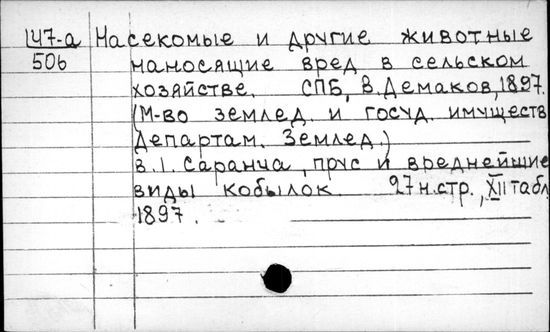 147-а Насекомые и другие животные
506 наносящие вред в сельском
хозяйстве. СПБ, В. Демаков, 1897.
(М-во землед. и госуд. имуществ
Департам. Землед.)
в.1. Саранча, прус и вреднейшие
виды кобылок 27 н.стр., XII табл
1897.